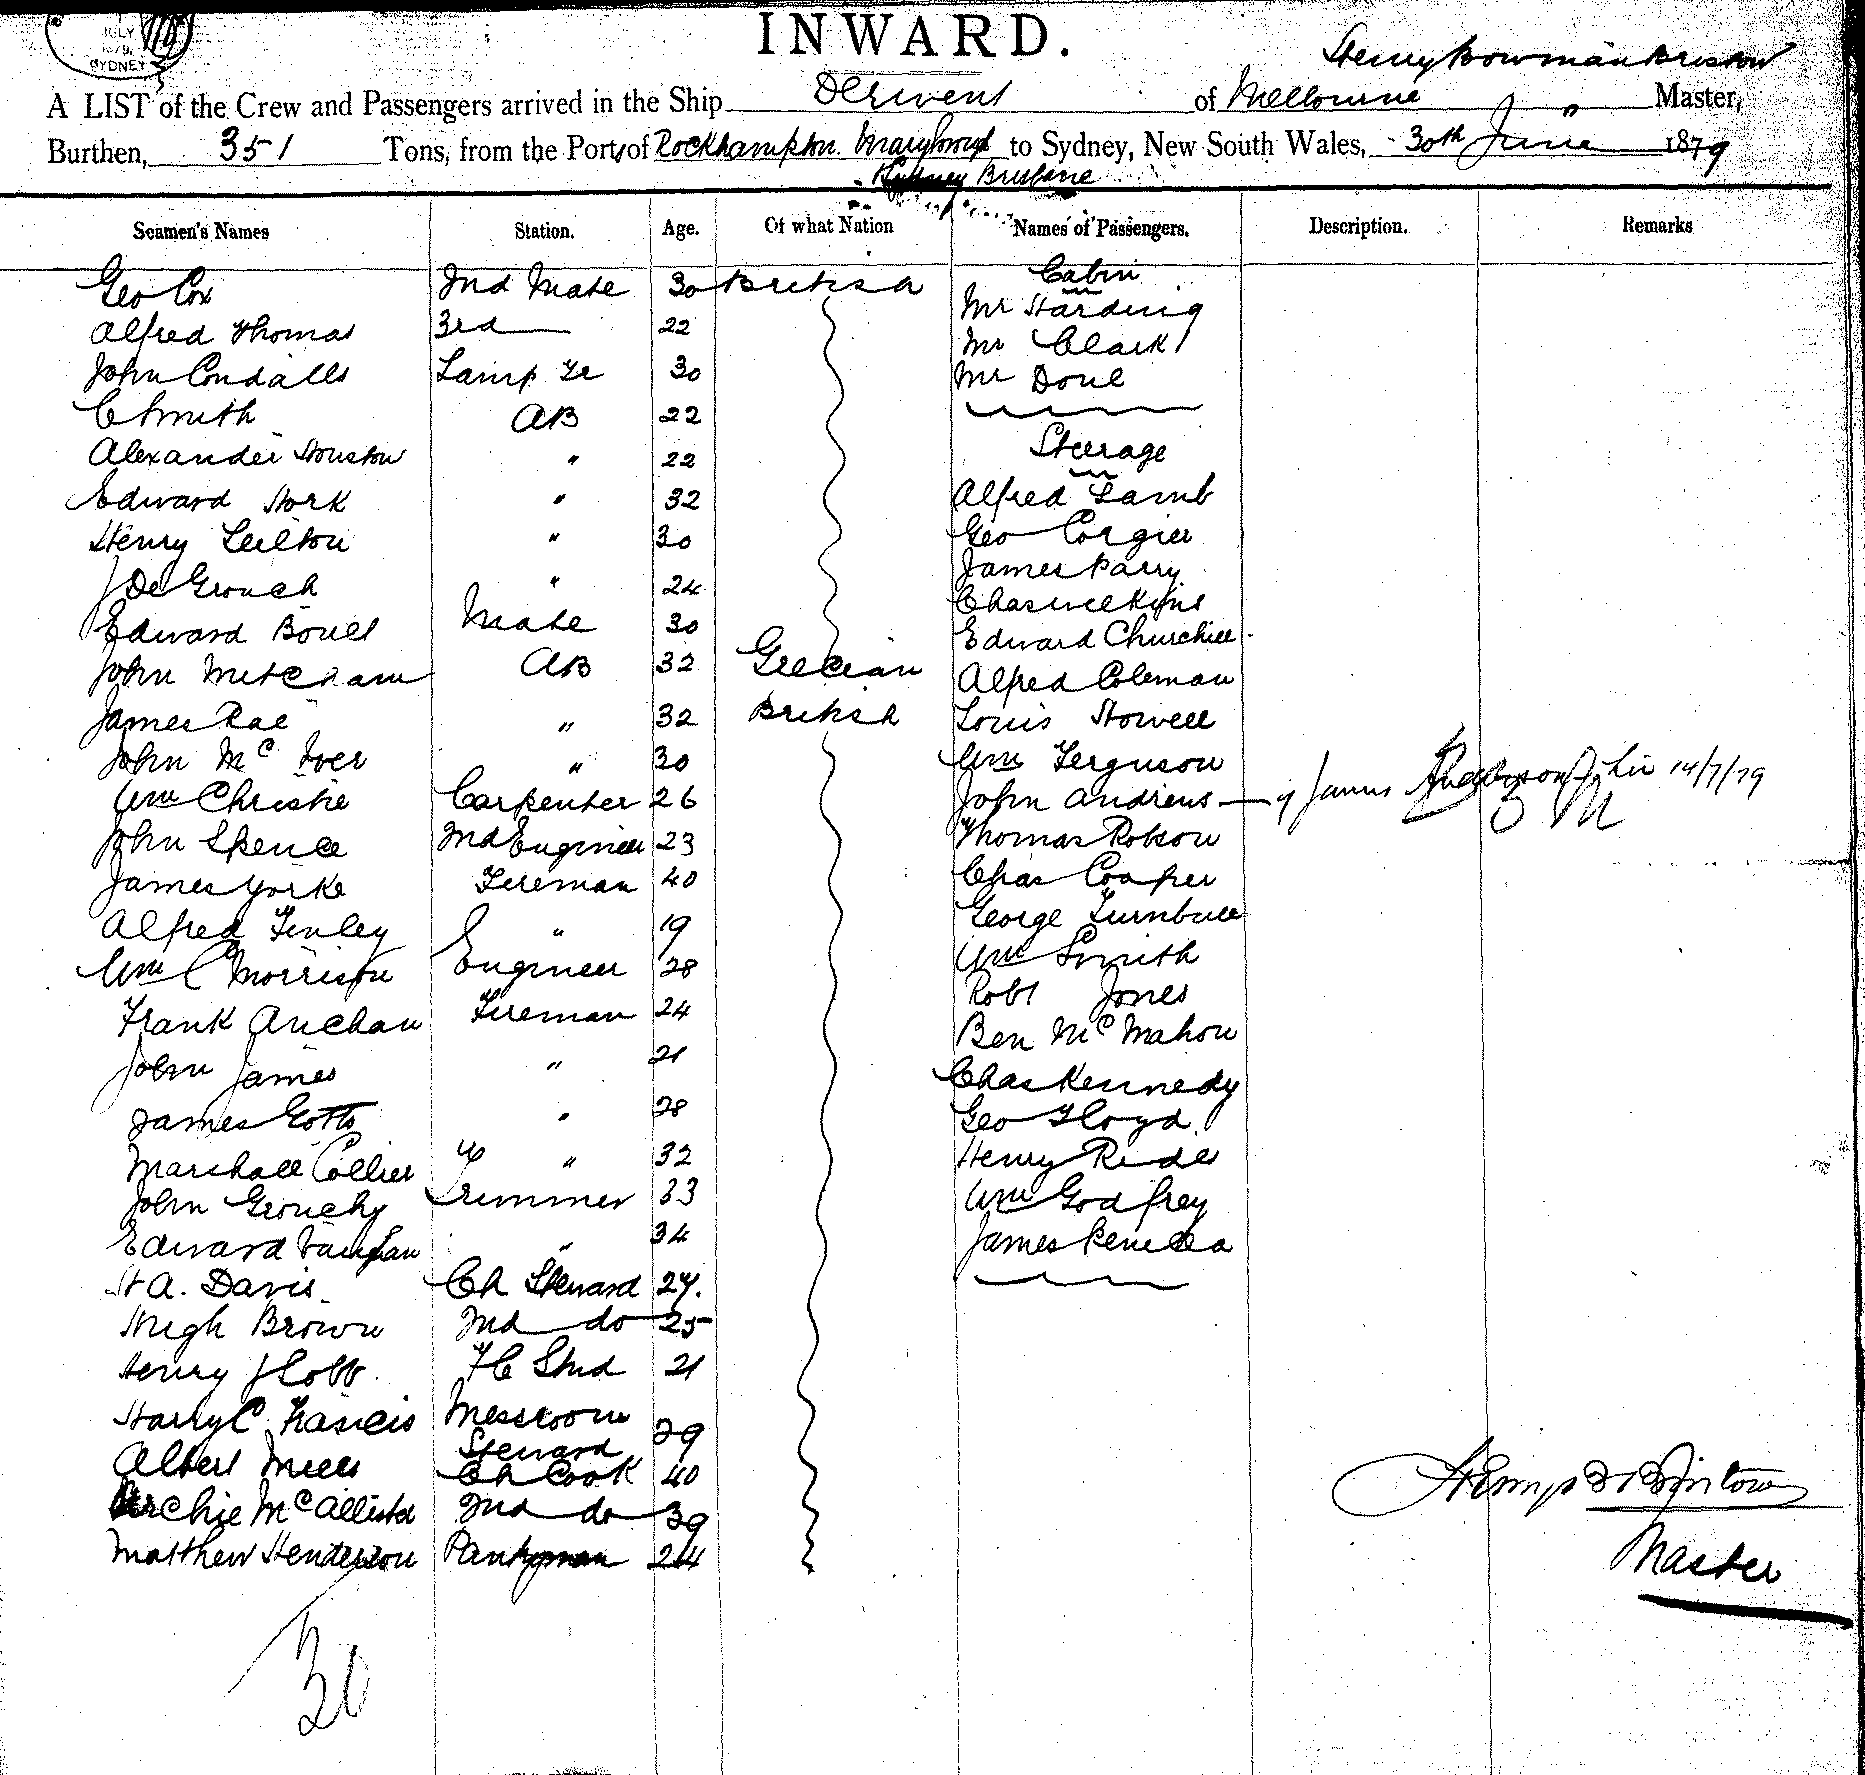 JULY
1879
SYDNEY
INWARD.
Henry Bowman Bristow
A LIST of the Crew and Passengers arrived in the Ship Derwent of Melbourne " Master,
Burthen, 351 Tons, from the Port, of Rockhampton Marybro' to Sydney, New South Wales, 30th June 1879
Brisbane
Seamen's Names Station. Age. Of what Nation Names of Passengers. Description. Remarks
Geo Cox 2nd Mate 30 British Cabin
Mr Harding
Alfred Thomas 3rd 22 Mr Clark
John Condalls Lamp Tr 30 Mr Doul
C Smith AB 22
Steerage
Alexander Houston " 22
Edward Hork " 32 Alfred Lamb
Henry Leilton " 30 Geo Corgier
James Parry
J De Grouch " 24 Chas Wilkins
Edward Bouel Mate 30 Edward Churchill
John Metcham AB 32 Grecian Alfred Coleman
James Rae " 32 British Louis Howell
John McIver " 30 Wm Ferguson
Wm Christie Carpenter 26 John Andrews James 14/7/79
John Spence 2nd Engineer 23 Thomas Robson
James Yorke Fireman 40 Chas Cooper
Alfred Finley " 19 George Turnbull
Wm C Morrison Engineer 28 Wm Smith
Frank Auchan Fireman 24 Robt Jones
Ben McMahon
John James " 21 Chas Kennedy
James Gotts " 28 Geo Floyd
Marshall Collier " 32 Henry Rides
John Grouchy Trimmer 33 Wm Godfrey
Edward Vaughan " 34 James
H A. Davis Ch Steward 27.
Hugh Brown 2nd do 25
Henry J Cobb FC Stud 21
Harry C Francis Messroom Steward 29
Albert Mills Ch Cook 40
Archie McAllister 2nd do 39
Matthew Henderson Pantryman 24
Henry B Bristow
Master
30